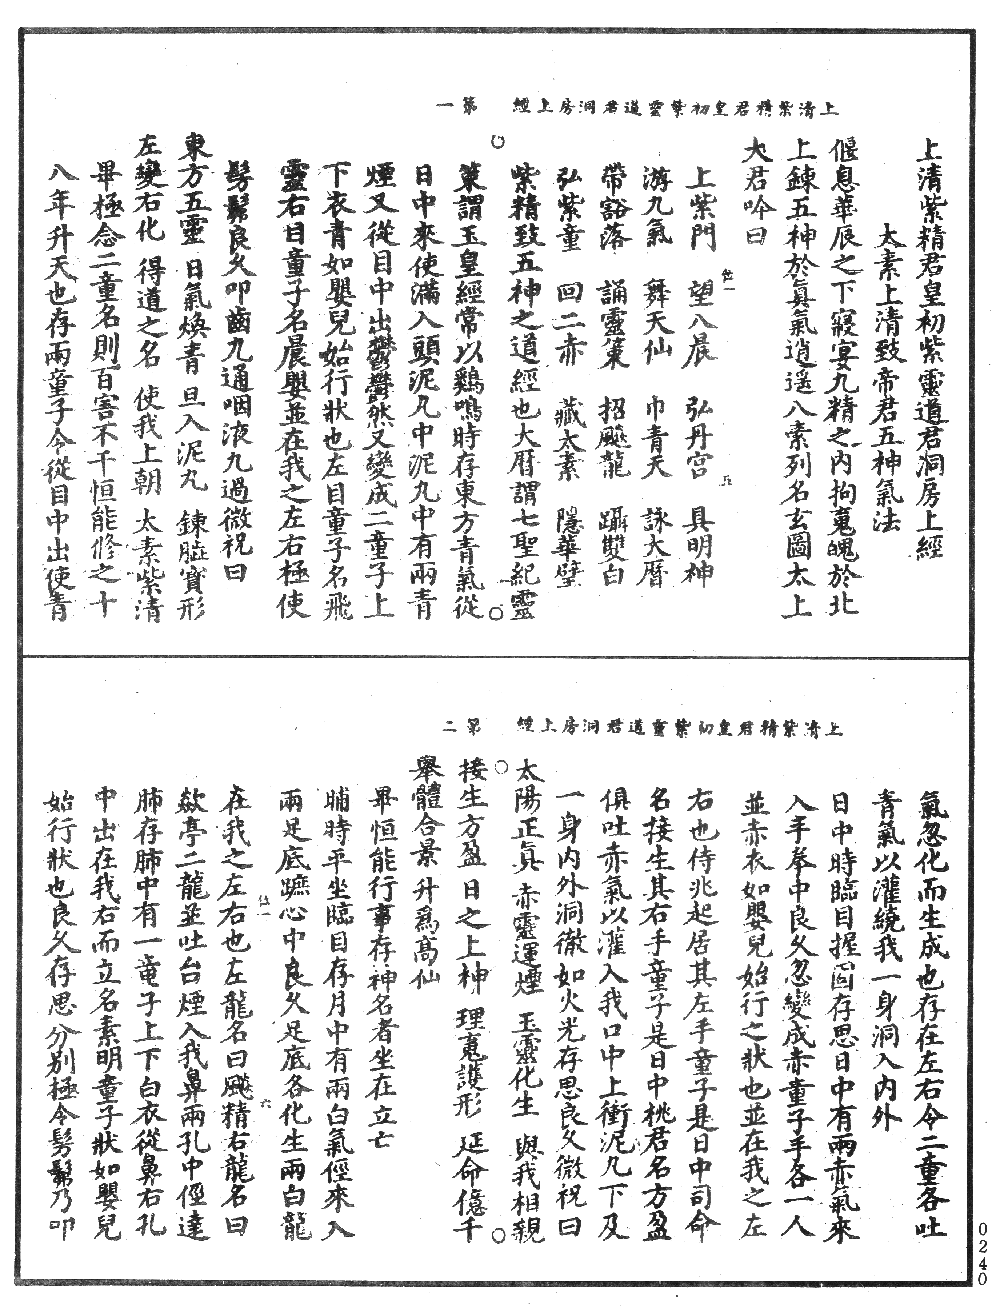 上清紫精君皇初紫靈道君洞房上經　第一
上清紫精君皇初紫靈道君洞房上經
太素上清致帝君五神氣法
偃息華辰之下寢宴九精之内拘䰟魄於北
上鍊五神於眞氣逍遥八素列名玄圖太上
大君吟曰
上紫門　望八晨　弘丹宮　具明神
游九氣　舞天仙　巾青天　詠大曆
帶豁落　誦靈策　招飈龍　躡雙白
弘紫童　回二赤　藏太素　隱華壁
紫精致五神之道經也大曆謂七聖紀靈
策謂玉皇經常以鷄鳴時存東方青氣從
日中來使滿入頭泥丸中泥丸中有兩青
煙又從目中出鬱鬱然又變成二童子上
下衣青如嬰兒始行狀也左目童子名飛
靈右目童子名晨嬰並在我之左右極使
髣髴良久叩齒九通咽液九過微祝曰
東方五靈　日氣煥青　旦入泥丸　鍊腦寶形
左變右化　得道之名　使我上朝　太素紫清
畢極念二童名則百害不干恒能修之十
八年升天也存兩童子令從目中出使青
上清紫精君皇初紫靈道君洞房上經　第二
氣忽化而生成也存在左右令二童各吐
青氣以灌繞我一身洞入内外
日中時臨目握固存思日中有兩赤氣來
入手拳中良久忽變成赤童子手各一人
並赤衣如嬰兒始行之狀也並在我之左
右也侍兆起居其左手童子是日中司命
名接生其右手童子是日中桃君名方盈
俱吐赤氣以灌入我口中上衝泥丸下及
一身内外洞徹如火光存思良久微祝曰
太陽正眞　赤靈運煙　玉靈化生　與我相親
接生方盈　日之上神　理䰟護形　延命億千
舉體合景　升爲高仙
畢恒能行事存神名者坐在立亡
晡時平坐臨目存月中有兩白氣徑來入
兩足底蹠心中良久足底各化生兩白龍
在我之左右也左龍名曰飈精右龍名曰
歘亭二龍並吐白煙入我鼻兩孔中徑達
肺存肺中有一童子上下白衣從鼻右孔
中出在我右而立名素明童子狀如嬰兒
始行狀也良久存思分別極令髣髴乃叩
0240